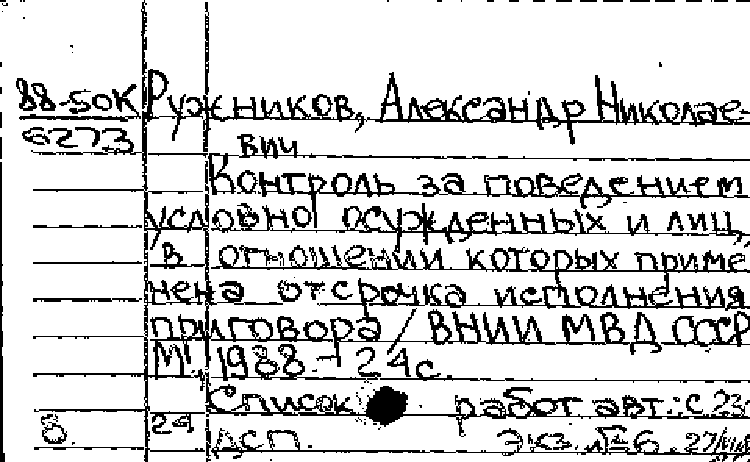 88-50К Ружников, Александр Николае-
6273 вич
Контроль за поведением
условно осужденных и лиц,
в отношении которых приме
нена отсрочка исполнения
приговора / ВНИИ МВД СССР
М., 1988. - 24с.
Список работ авт.: с. 23
8. 24 ДСП. Экз. №6. 27/